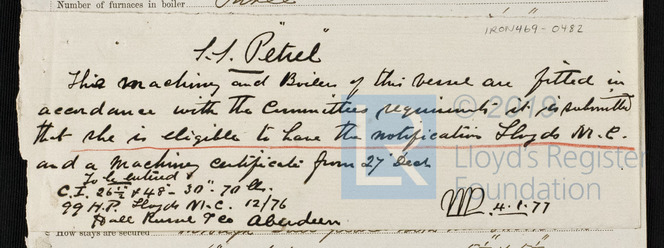 Number of furnaces in boiler Three
IRON469-0482
S.S. "Petrel"
This machinery and Boiler of this vessel are fitted in
accordance with the Committees requirements it is submitted
that she is eligible to have the notification Lloyds M.C.
and a Machinery certificate from 27 Dec
To be entered
C.I. 26½" & 48" - 30" 70 lbs.
99 H.P. Lloyds M.C. 12/76
Hall Russel & Co Aberdeen
4.1.77
How stays are secured
© 2019
Lloyd's Register
Foundation
LR